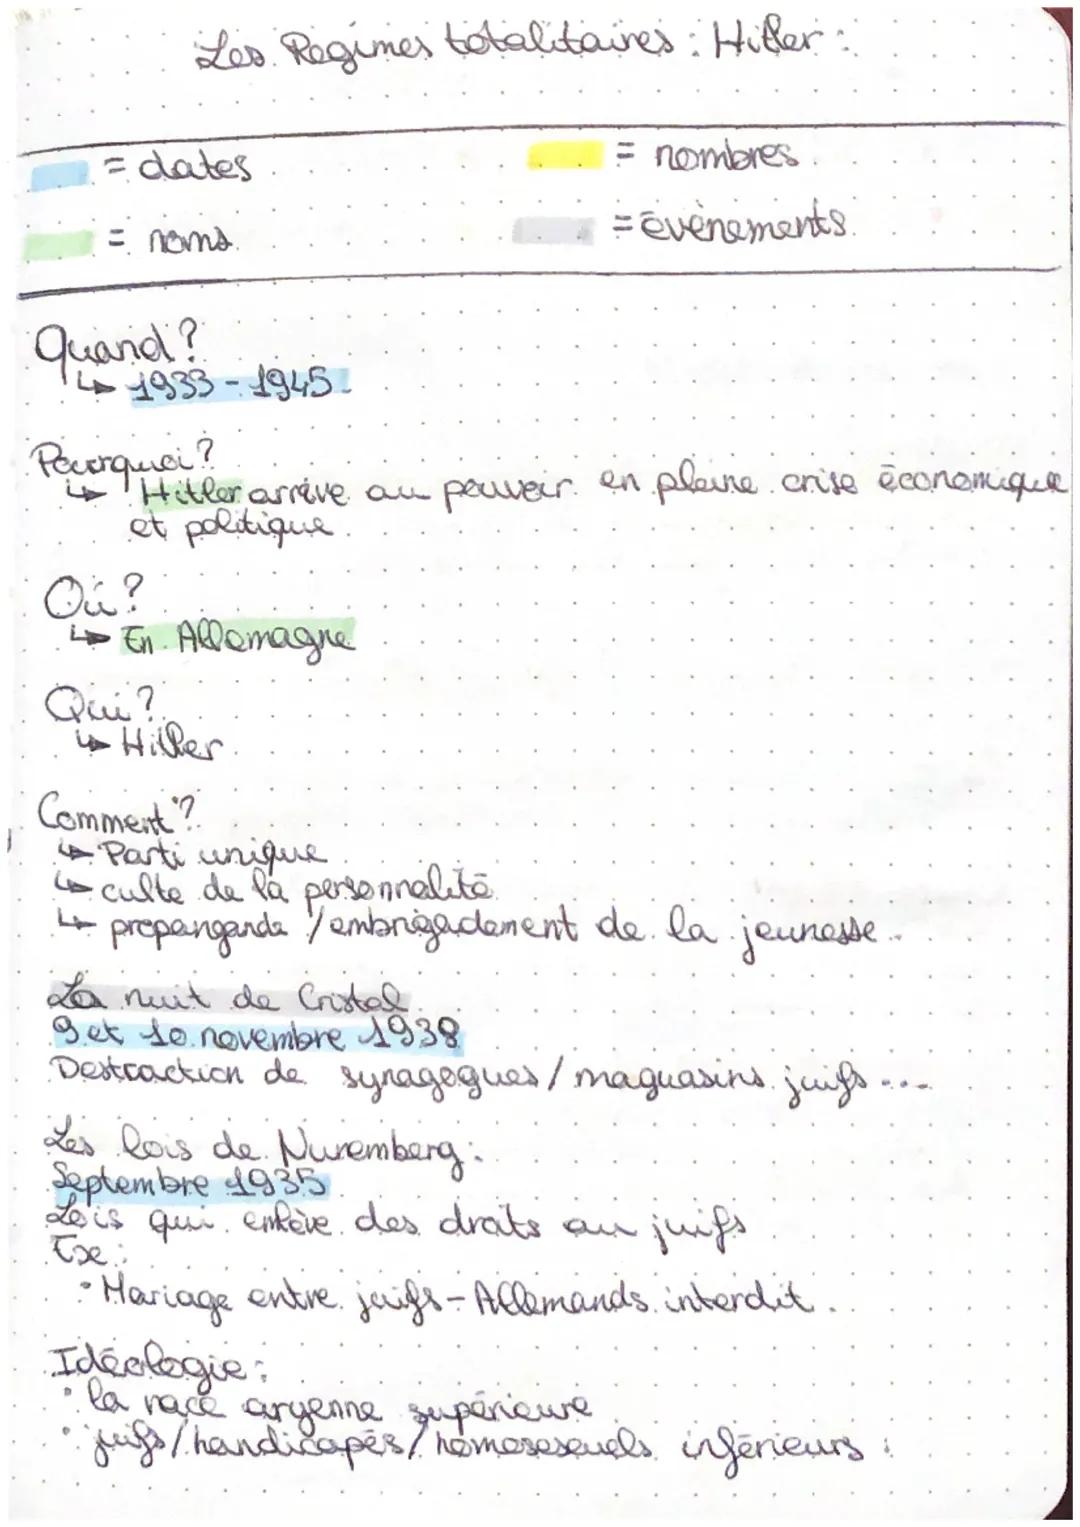 Les Régimes totalitaires : Hitler :
= dates
= nombres
= noms
= évènements
Quand ?
↳ 1933 - 1945
Pourquoi ?
↳ Hitler arrive au pouvoir en pleine crise économique
et politique
Où ?
↳ En Allemagne
Qui ?
↳ Hitler
Comment ?
↳ Parti unique
↳ culte de la personnalité
↳ propangande / embrigadement de la jeunesse
La nuit de Cristal
9 et 10 novembre 1938
Destruction de synagogues / maguasins juifs ...
Les lois de Nuremberg :
Septembre 1935
Lois qui enlève des droits au juifs
Exe :
• Mariage entre juifs - Allemands interdit.
Idéologie :
• la race aryenne supérieure
• juifs / handicapés / homosexuels inférieurs